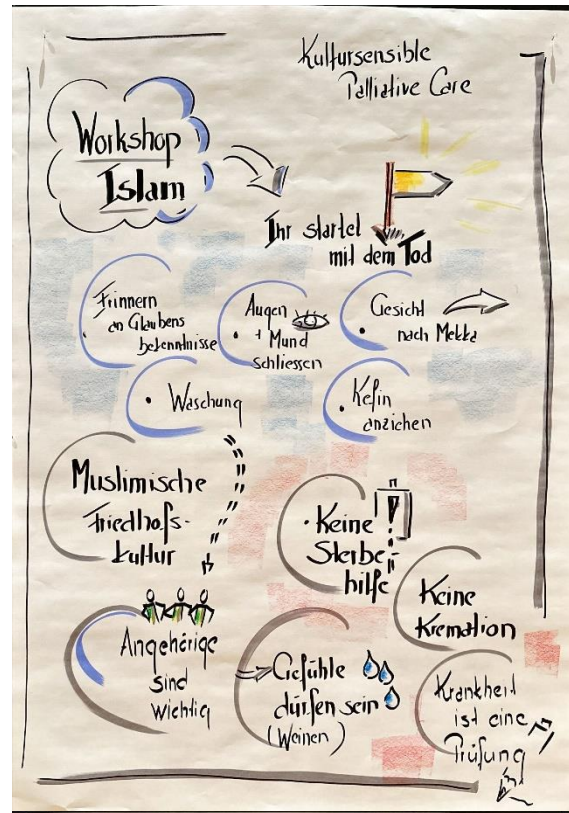 Kultursensible
Palliative Care
Workshop
Islam
Ihr startet
mit dem Tod
Erinnern
an Glaubens
bekenntnisse
Augen
+ Mund
schliessen
Gesicht
nach Mekka
Waschung
Kefin
anziehen
Muslimische
Friedhofs-
kultur
Keine
Sterbe
hilfe
!
Keine
Kremation
Angehörige
sind
wichtig
Gefühle
dürfen sein
(Weinen)
Krankheit
ist eine
Prüfung